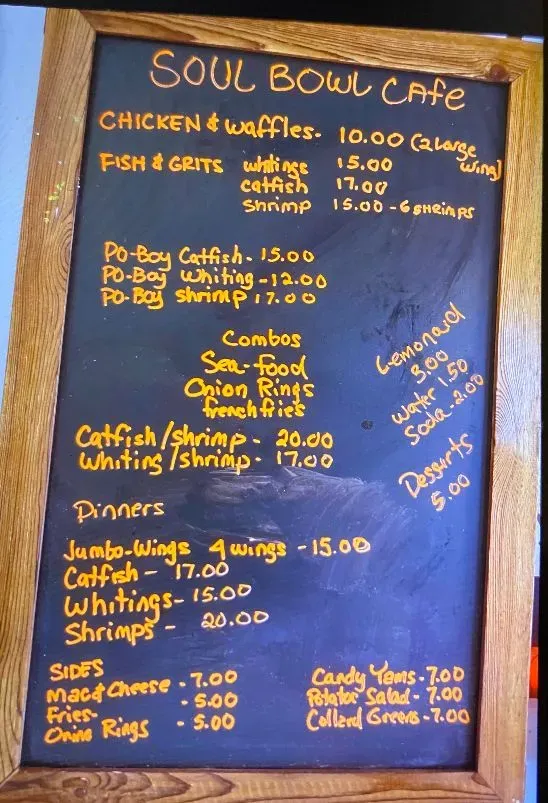 SOUL BOWL CAfe
CHICKEN & waffles- 10.00 (2 Large wing)
FISH & GRITS whitings 15.00
catfish 17.00
shrimp 15.00 - 6 SHRIMPS
Po-Boy Catfish - 15.00
Po-Boy Whiting - 12.00
Po-Boy shrimp 17.00
Combos
Sea-food
Onion Rings
french fries
Catfish/shrimp - 20.00
Whiting/shrimp - 17.00
Lemonaid
3.00
water 1.50
Soda - 2.00
Desserts
5.00
Dinners
Jumbo-Wings 4 wings - 15.00
Catfish - 17.00
Whitings - 15.00
Shrimps - 20.00
SIDES
Mac & Cheese - 7.00
Fries - - 5.00
Onino Rings - 5.00
Candy Yams - 7.00
Potator Salad - 7.00
Collerd Greens - 7.00